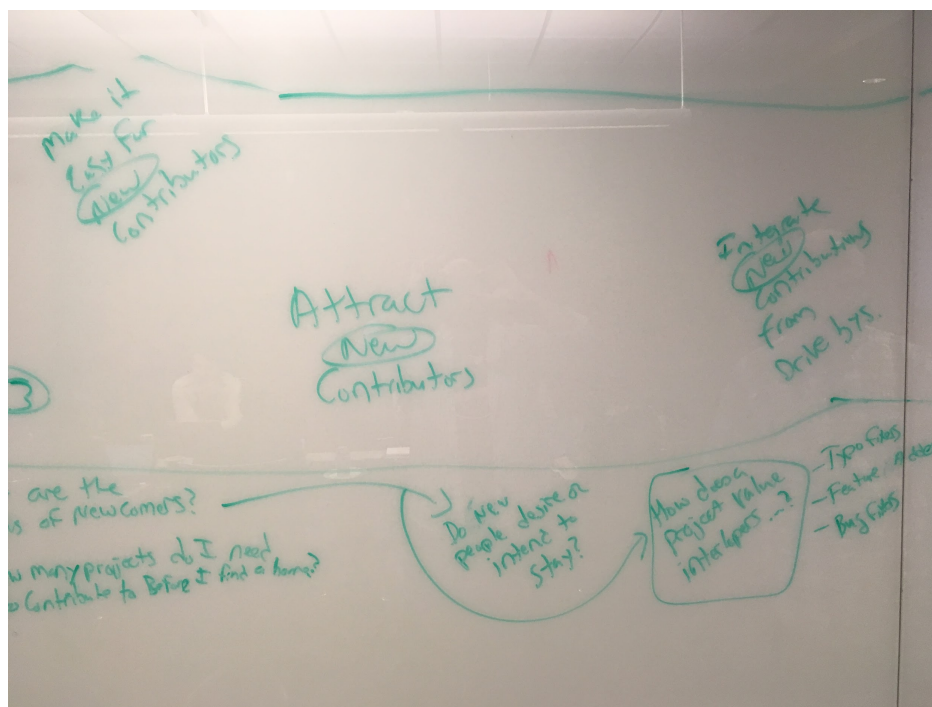 Make it
Easy for
New
Contributors
Attract
New
Contributors
Integrate
New
Contributions
from
Drive bys.
3
are the
of Newcomers?
many projects do I need
Contribute to Before I find a home?
Do New
people desire or
intent to
stay?
How does a
project value
interlopers ...?
- Typo fixers
- Feature
- Bug fixers